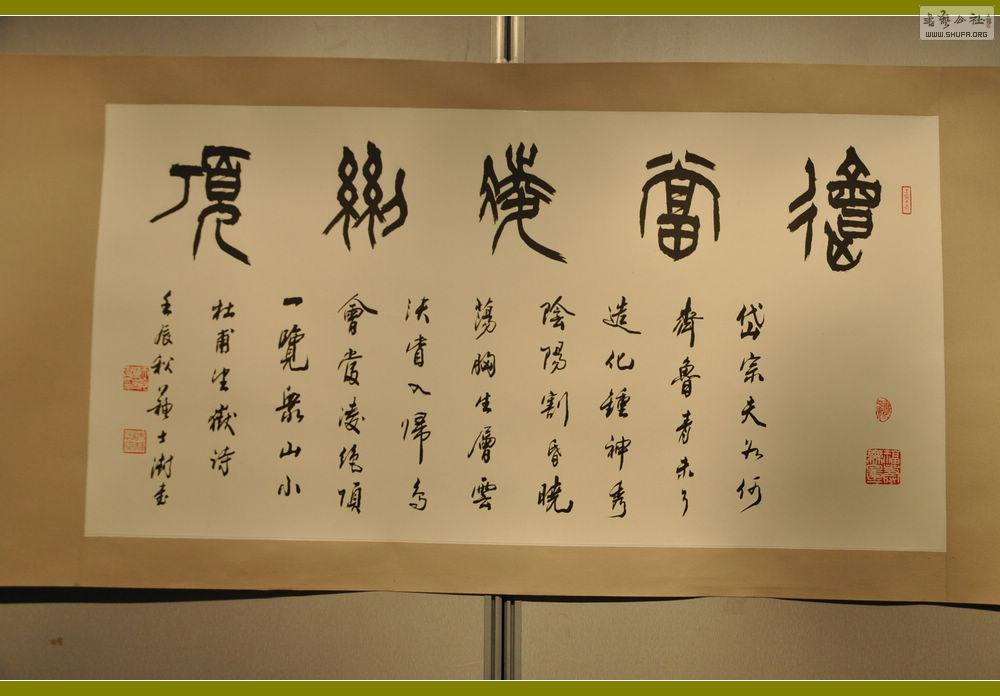 會當凌絕頂
岱宗夫如何
齊魯青未了
造化鍾神秀
陰陽割昏曉
蕩胸生層雲
決眥入歸鳥
會當凌絕頂
一覽衆山小
杜甫望嶽詩
壬辰秋蘇士澍書
書藝公社
WWW.SHUFA.ORG